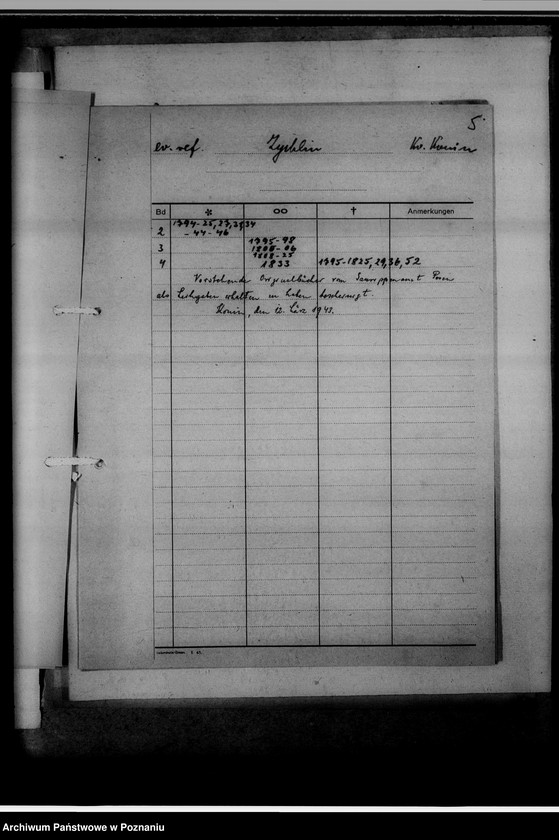 5
ev. ref. Zychlin Kr. Konin
Bd * ∞ † Anmerkungen
1794-25, 27, 31, 34
2 - 44 - 46
1795-98
3 1800-06
1808-25
4 1833 1795-1825, 29, 36, 52
Vorstehende Originalbücher vom Gausippenamt Posen
als Leihgabe erhalten zu haben bescheinigt.
Konin, den 12. März 1943.
Archiwum Państwowe w Poznaniu